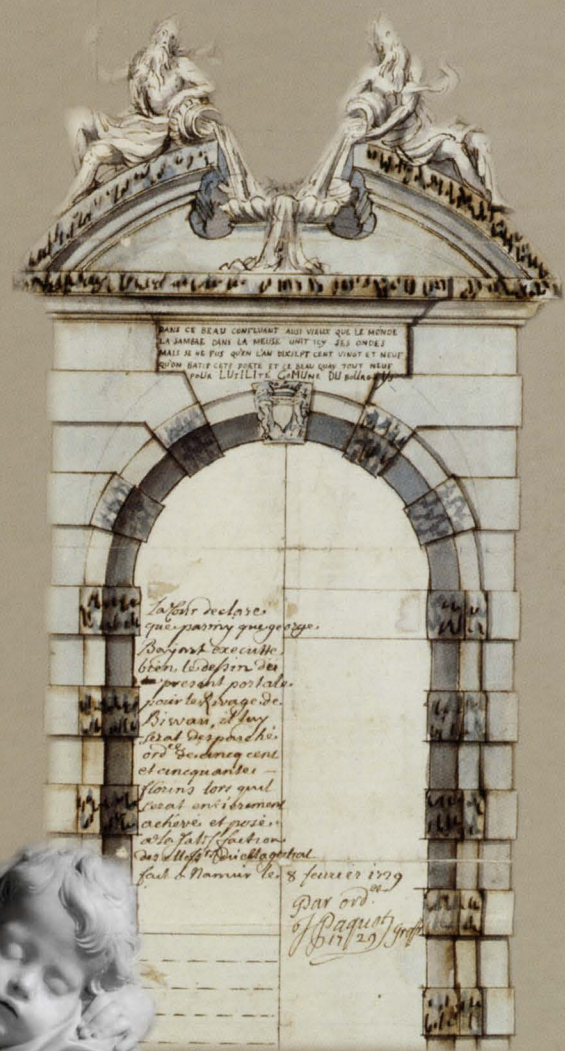 DANS CE BEAU CONFLUANT AUSI VIEUX QUE LE MONDE
LA SAMBRE DANS LA MEUSE UNIT ICY SES ONDES
MAIS JE NE FUS QU'EN L'AN DIXSEPT CENT VINGT ET NEUF
QU'ON BATIT CETE PORTE ET CE BEAU QUAY TOUT NEUF
POUR LUTILITE COMUNE DU
La Cour declare
que parmy que george
Bayart executte
bien le dessin du
present portale
pour le Rivage de
et luy
serat despaeché
ord.ce de cincq cent
et cincquante
florins lors quil
serat entierement
achevé et posée
a la satisfaction
des Mess.rs du Magistrat
fait a Namur le 8 feurier 1729
Par ord.
J Paquot
1729 Greff